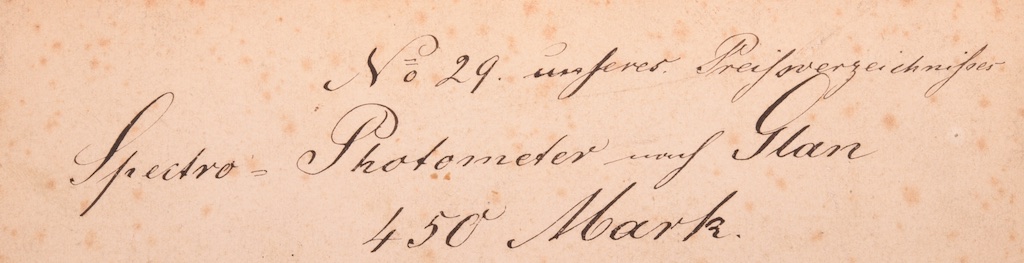 No 29. unseres Preisverzeichnisses
Spectro = Photometer nach Glan
450 Mark.